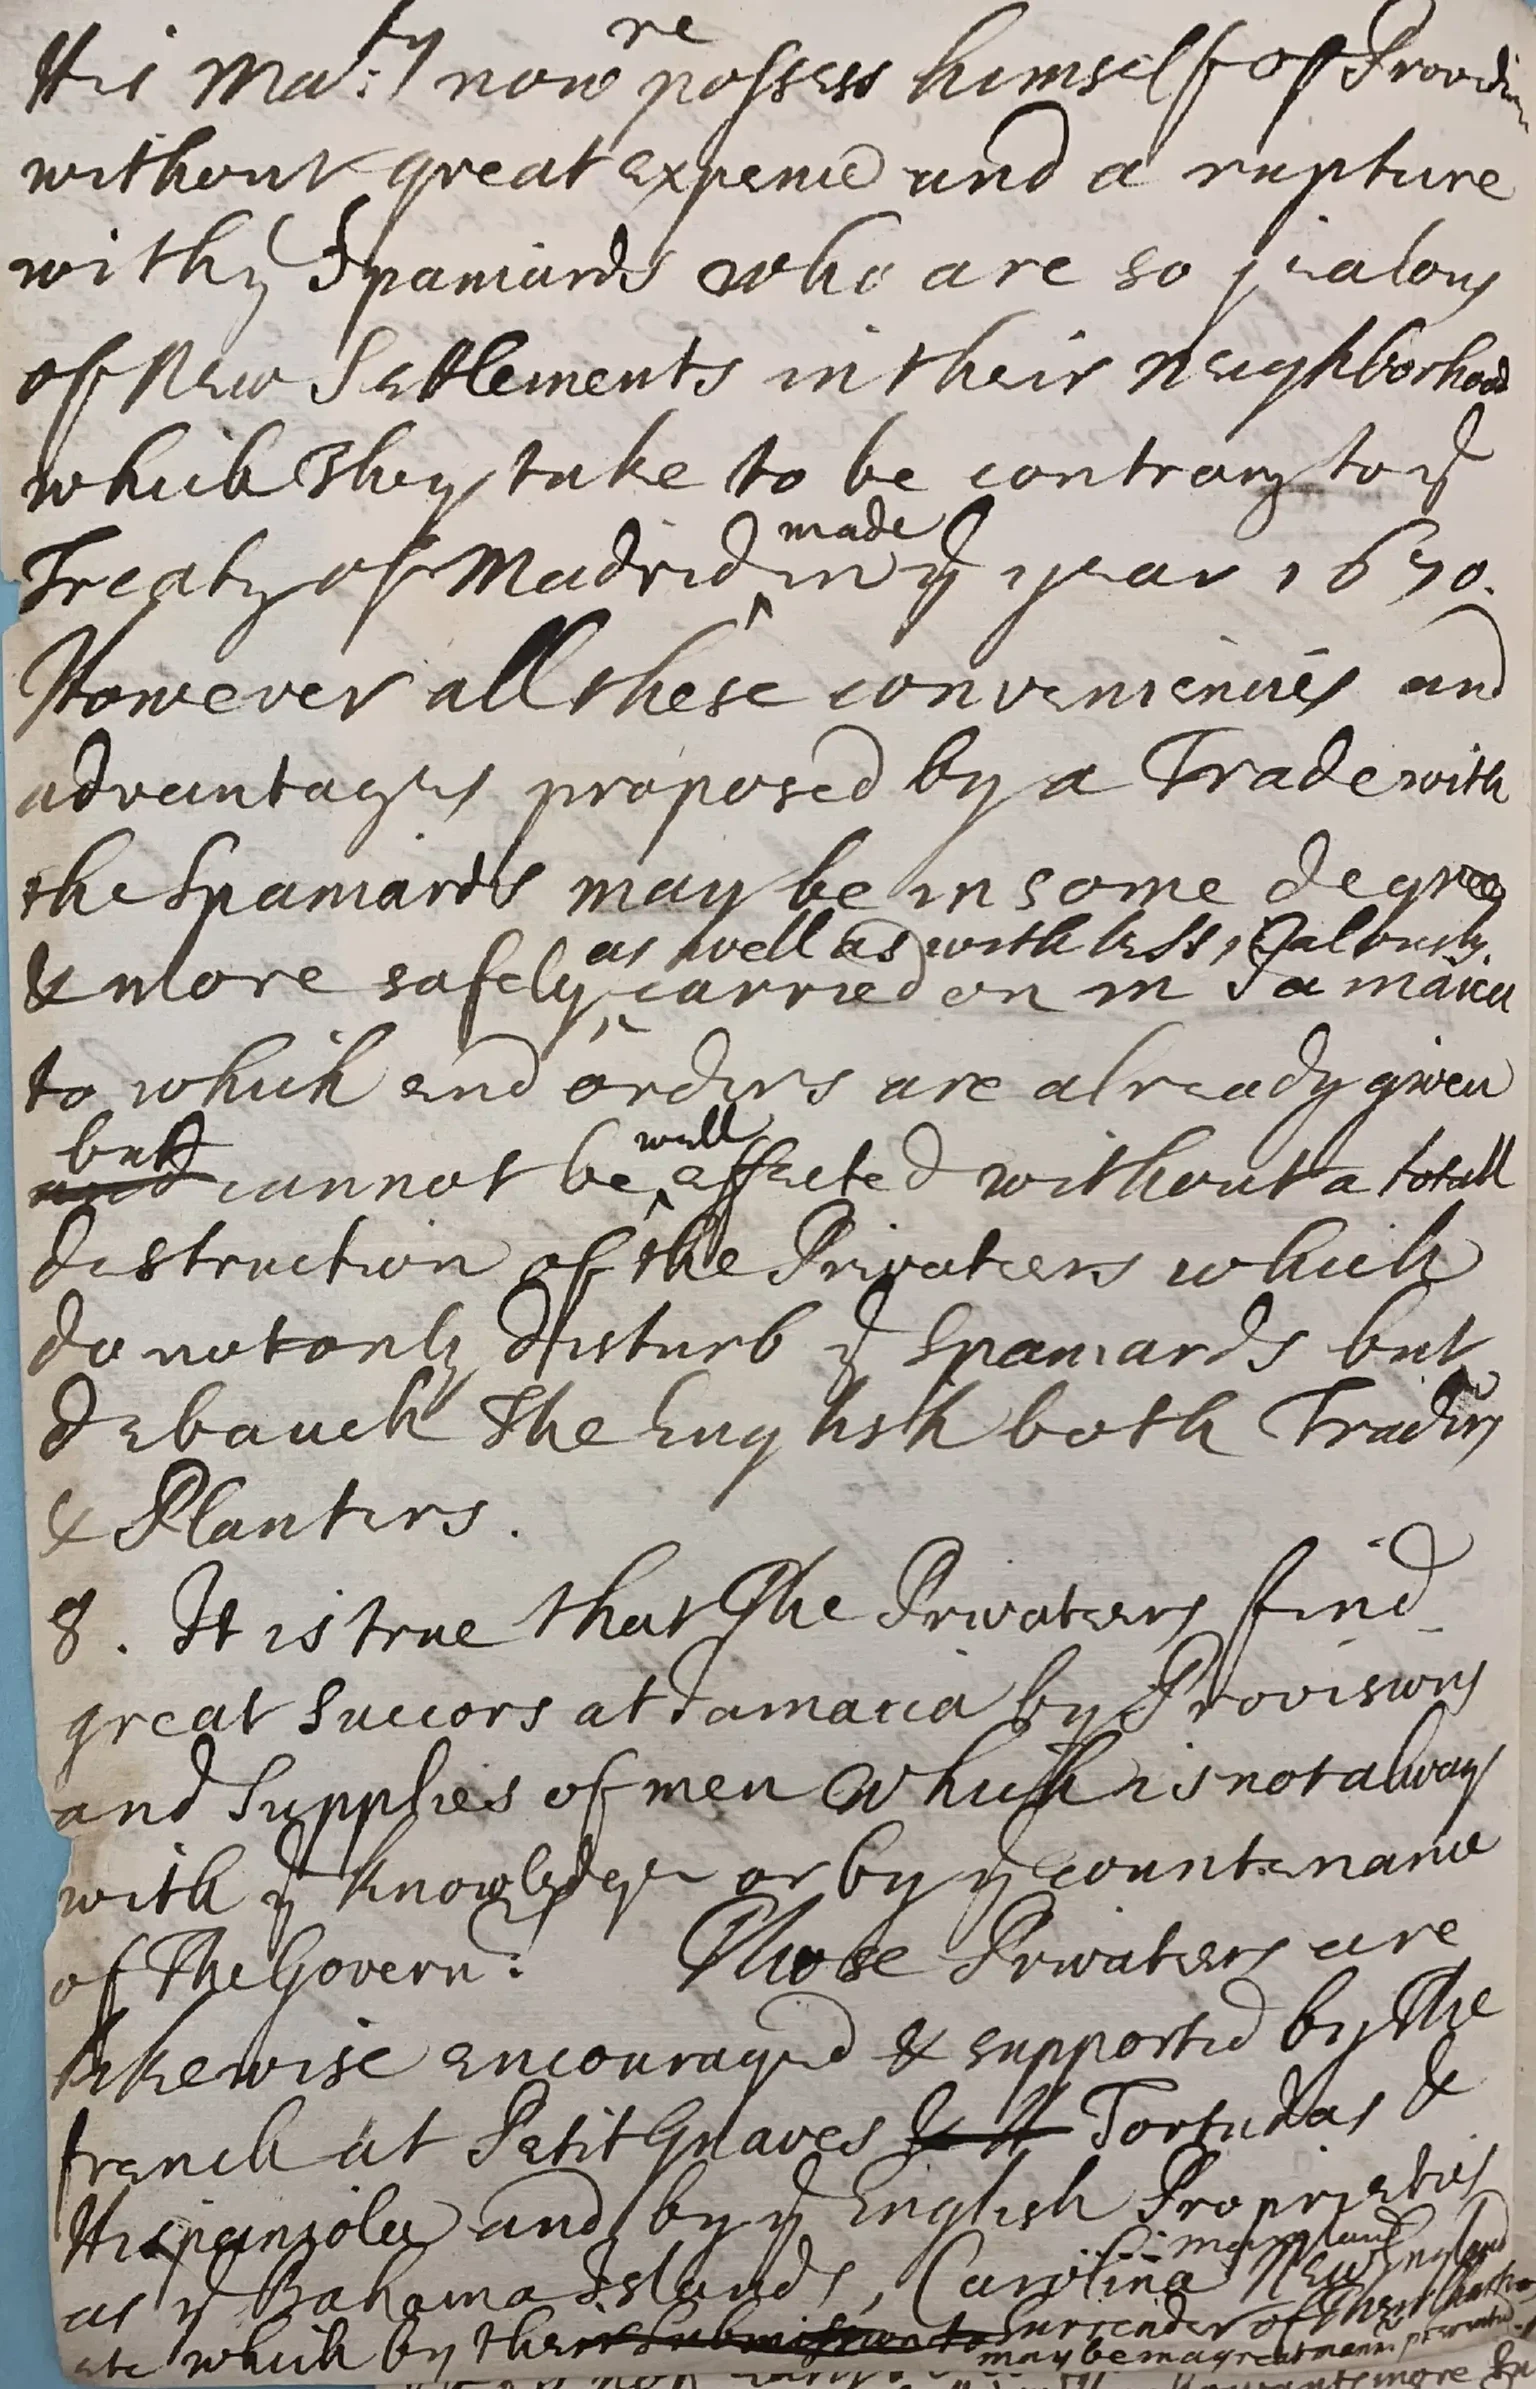 His Ma:ty now re possess himself of Providen
without great expence and a rupture
with ye Spaniards who are so jealous
of New Settlements in their neighborhood
which They take to be contrary to ye
Treaty of Madrid made in ye year 1670.
However all these conveniencies and
advantages proposed by a Trade with
the Spaniards may be in some degree
as well as with less jealousy
& more safely carried on in Jamaica
to which end orders are already given
but
and cannot be well effected without a totall
destruction of the Privateers which
do not only disturb ye Spaniards but
debauch The English both Traders
& Planters.
8. It is true that The Privateers find
great Succors at Jamaica by Provisions
and Supplies of men which is not always
with ye knowledge or by ye countenance
of The Govern:r Those Privateers are
likewise encouraged & supported by The
french at Petit Guaves Tortudas &
Hispaniola and by ye English Proprieties
as ye Bahama Islands, Carolina Maryland New England
etc which by their Submission to Surrender of their
may be in a great
more